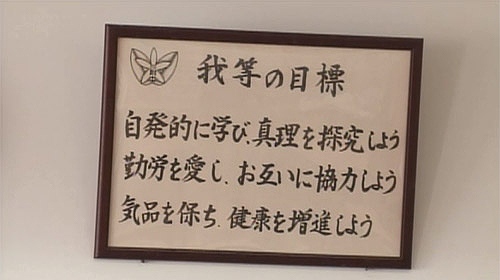 我等の目標
自発的に学び、真理を探究しよう
勤労を愛し、お互いに協力しよう
気品を保ち、健康を増進しよう